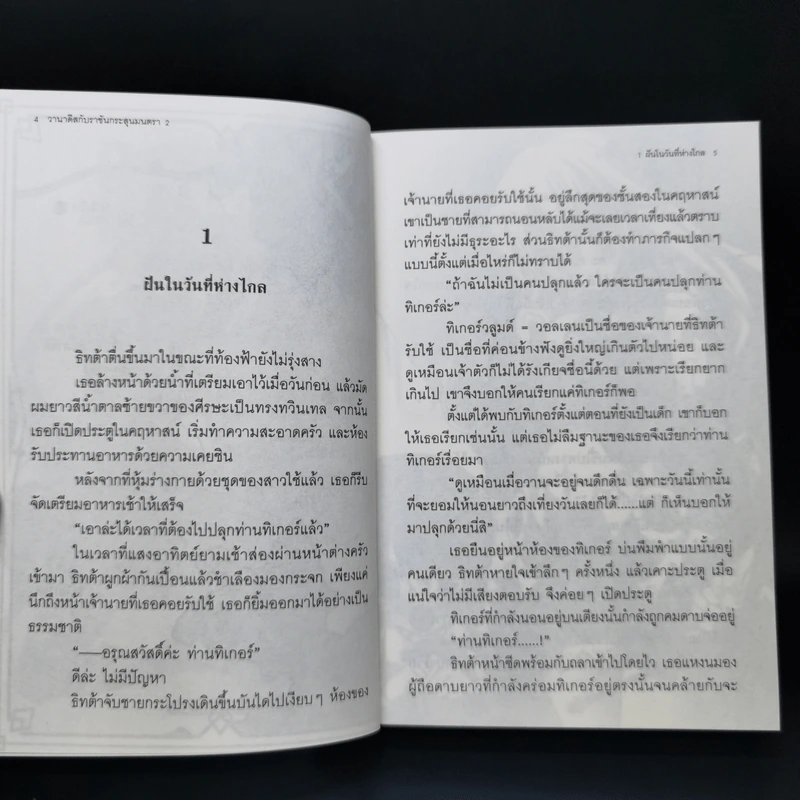 4 วานาดีสกับราชันกระสุนมนตรา 2
1
ฝันในวันที่ห่างไกล
ธิทต้าตื่นขึ้นมาในขณะที่ท้องฟ้ายังไม่รุ่งสาง
เธอล้างหน้าด้วยน้ำที่เตรียมเอาไว้เมื่อวันก่อน แล้วมัด
ผมยาวสีน้ำตาลซ้ายขวาของศีรษะเป็นทรงทวินเทล จากนั้น
เธอก็เปิดประตูในคฤหาสน์ เริ่มทำความสะอาดครัว และห้อง
รับประทานอาหารด้วยความเคยชิน
หลังจากที่หุ้มร่างกายด้วยชุดของสาวใช้แล้ว เธอก็รีบ
จัดเตรียมอาหารเช้าให้เสร็จ
“เอาล่ะได้เวลาที่ต้องไปปลุกท่านทิเกอร์แล้ว”
ในเวลาที่แสงอาทิตย์ยามเช้าส่องผ่านหน้าต่างครัว
เข้ามา ธิทต้าผูกผ้ากันเปื้อนแล้วชำเลืองมองกระจก เพียงแค่
นึกถึงหน้าเจ้านายที่เธอคอยรับใช้ เธอก็ยิ้มออกมาได้อย่างเป็น
ธรรมชาติ
“——อรุณสวัสดิ์ค่ะ ท่านทิเกอร์”
ดีล่ะ ไม่มีปัญหา
ธิทต้าจับชายกระโปรงเดินขึ้นบันไดไปเงียบๆ ห้องของ
1 ฝันในวันที่ห่างไกล 5
เจ้านายที่เธอคอยรับใช้นั้น อยู่ลึกสุดของชั้นสองในคฤหาสน์
เขาเป็นชายที่สามารถนอนหลับได้แม้จะเลยเวลาเที่ยงแล้วตราบ
เท่าที่ยังไม่มีธุระอะไร ส่วนธิทต้านั้นก็ต้องทำภารกิจแปลกๆ
แบบนี้ตั้งแต่เมื่อไหร่ก็ไม่ทราบได้
“ถ้าฉันไม่เป็นคนปลุกแล้ว ใครจะเป็นคนปลุกท่าน
ทิเกอร์ล่ะ”
ทิเกอร์วลูมด์ = วอลเลนเป็นชื่อของเจ้านายที่ธิทต้า
รับใช้ เป็นชื่อที่ค่อนข้างฟังดูยิ่งใหญ่เกินตัวไปหน่อย และ
ดูเหมือนเจ้าตัวก็ไม่ได้รังเกียจชื่อนี้ด้วย แต่เพราะเรียกยาก
เกินไป เขาจึงบอกให้คนเรียกแค่ทิเกอร์ก็พอ
ตั้งแต่ได้พบกับทิเกอร์ตั้งแต่ตอนที่ยังเป็นเด็ก เขาก็บอก
ให้เธอเรียกเช่นนั้น แต่เธอไม่ลืมฐานะของเธอจึงเรียกว่าท่าน
ทิเกอร์เรื่อยมา
“ดูเหมือนเมื่อวานจะอยู่จนดึกดื่น เฉพาะวันนี้เท่านั้น
ที่จะยอมให้นอนยาวถึงเที่ยงวันเลยก็ได้......แต่ ก็เห็นบอกให้
มาปลุกด้วยนี่สิ”
เธอยืนอยู่หน้าห้องของทิเกอร์ บ่นพึมพำแบบนั้นอยู่
คนเดียว ธิทต้าหายใจเข้าลึกๆ ครั้งหนึ่ง แล้วเคาะประตู เมื่อ
แน่ใจว่าไม่มีเสียงตอบรับ จึงค่อยๆ เปิดประตู
ทิเกอร์ที่กำลังนอนอยู่บนเตียงนั้นกำลังถูกคมดาบจ่ออยู่
“ท่านทิเกอร์......!”
ธิทต้าหน้าซีดพร้อมกับถลาเข้าไปโดยไว เธอแหงนมอง
ผู้ถือดาบยาวที่กำลังคร่อมทิเกอร์อยู่ตรงนั้นจนคล้ายกับจะ